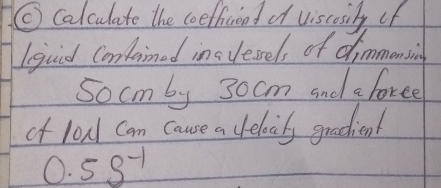 (c) Calculate the coefficient of viscosity if
liquid contained in a vessels of dimmension
50cm by 30cm and a force
of 10N can cause a velocity gradient
0.5 S⁻¹